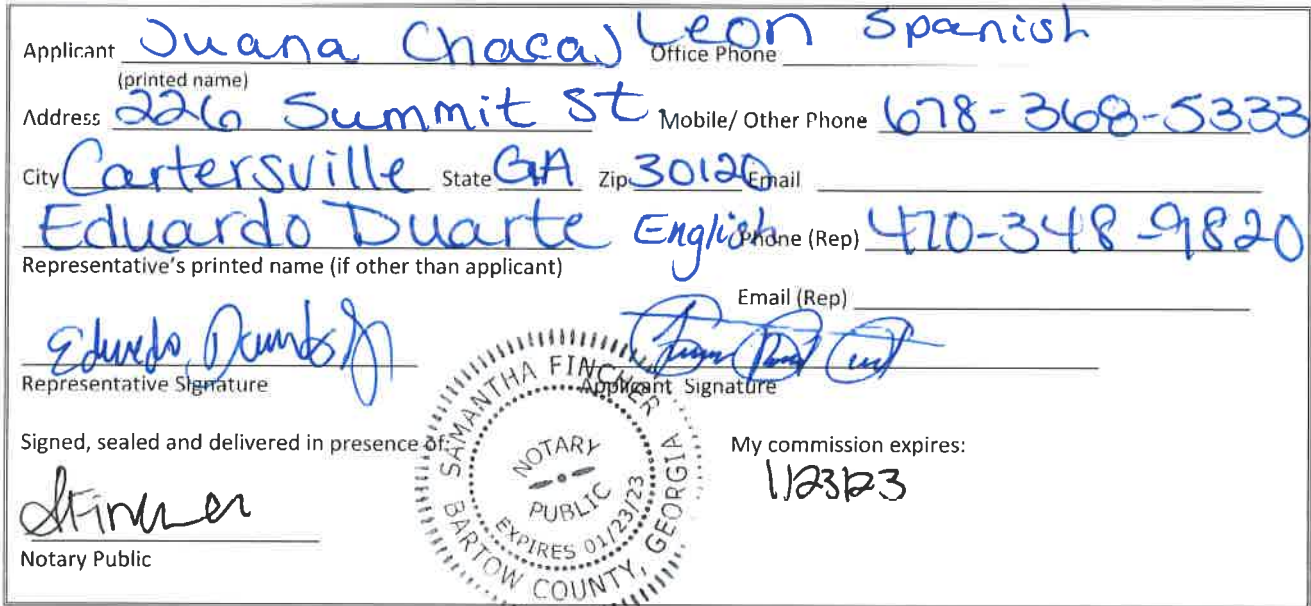 Applicant Juana Chacaj Leon Spanish Office Phone
(printed name)
Address 226 Summit St. Mobile/ Other Phone 678-368-5333
City Cartersville State GA Zip 30120 Email
Eduardo Duarte English Phone (Rep) 470-348-9820
Representative's printed name (if other than applicant)
Email (Rep)
Eduardo Duarte Jr
Representative Signature
Applicant Signature
Signed, sealed and delivered in presence of:
My commission expires:
1/23/23
SFincher
Notary Public
SAMANTHA FINCHER
NOTARY
PUBLIC
EXPIRES 01/23/23
BARTOW COUNTY, GEORGIA